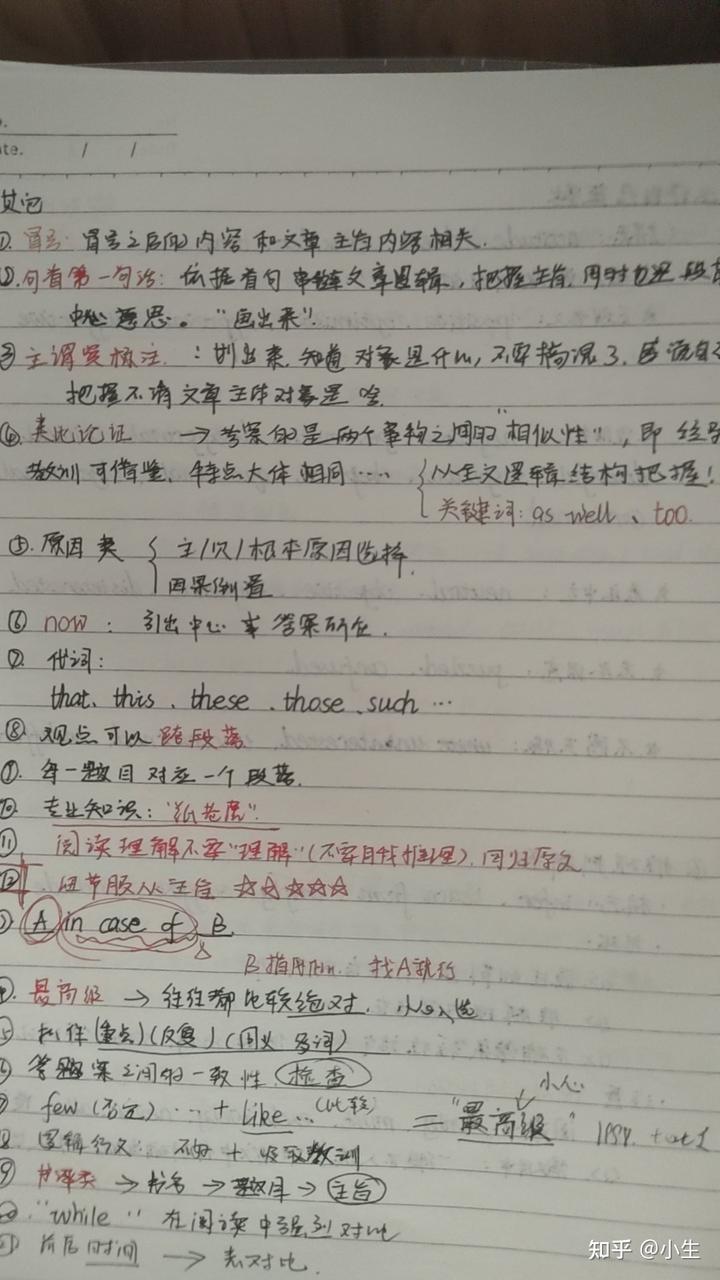 ate. / /
其它
①. 冒号: 冒号之后的内容和文章主旨内容相关.
②. 句首第一句话: 依据首句串联文章逻辑, 把握主旨. 同时也是段落
中心意思。 "画出来"!
③ 主谓宾标注 : 划出来, 知道对象是什么, 不要搞混了,
把握不清文章主体对象是啥.
④. 类比论证 → 考察的是两个事物之间的"相似性", 即经验
教训可借鉴、特点大体相同…… { 以全文逻辑结构把握!
关键词: as well、too.
⑤. 原因类 { 主/次/根本原因选择.
因果倒置
⑥ now: 引出中心或答案所在.
⑦. 代词:
that、this、these、those、such …
⑧ 观点可以跨段落
⑨. 每一题目对应一个段落.
⑩. 专业知识: "纸老虎".
⑪ 阅读理解不要"理解"(不要自我推理), 回归原文
⑫ 细节服从主旨 ☆☆☆☆☆
A in case of B.
B 找A就行
最高级 → 往往都比较绝对, 小心选
(重点)(反复)(同义 名词)
答案之间的一致性 检查
小心
few (否定) … + like … (比较) = "最高级"
逻辑行文 + 吸取教训
书评类 → 书名 → 题目 → 主旨
"while" 在阅读中强烈对比
前后时间 → 表对比.
知乎 @小生